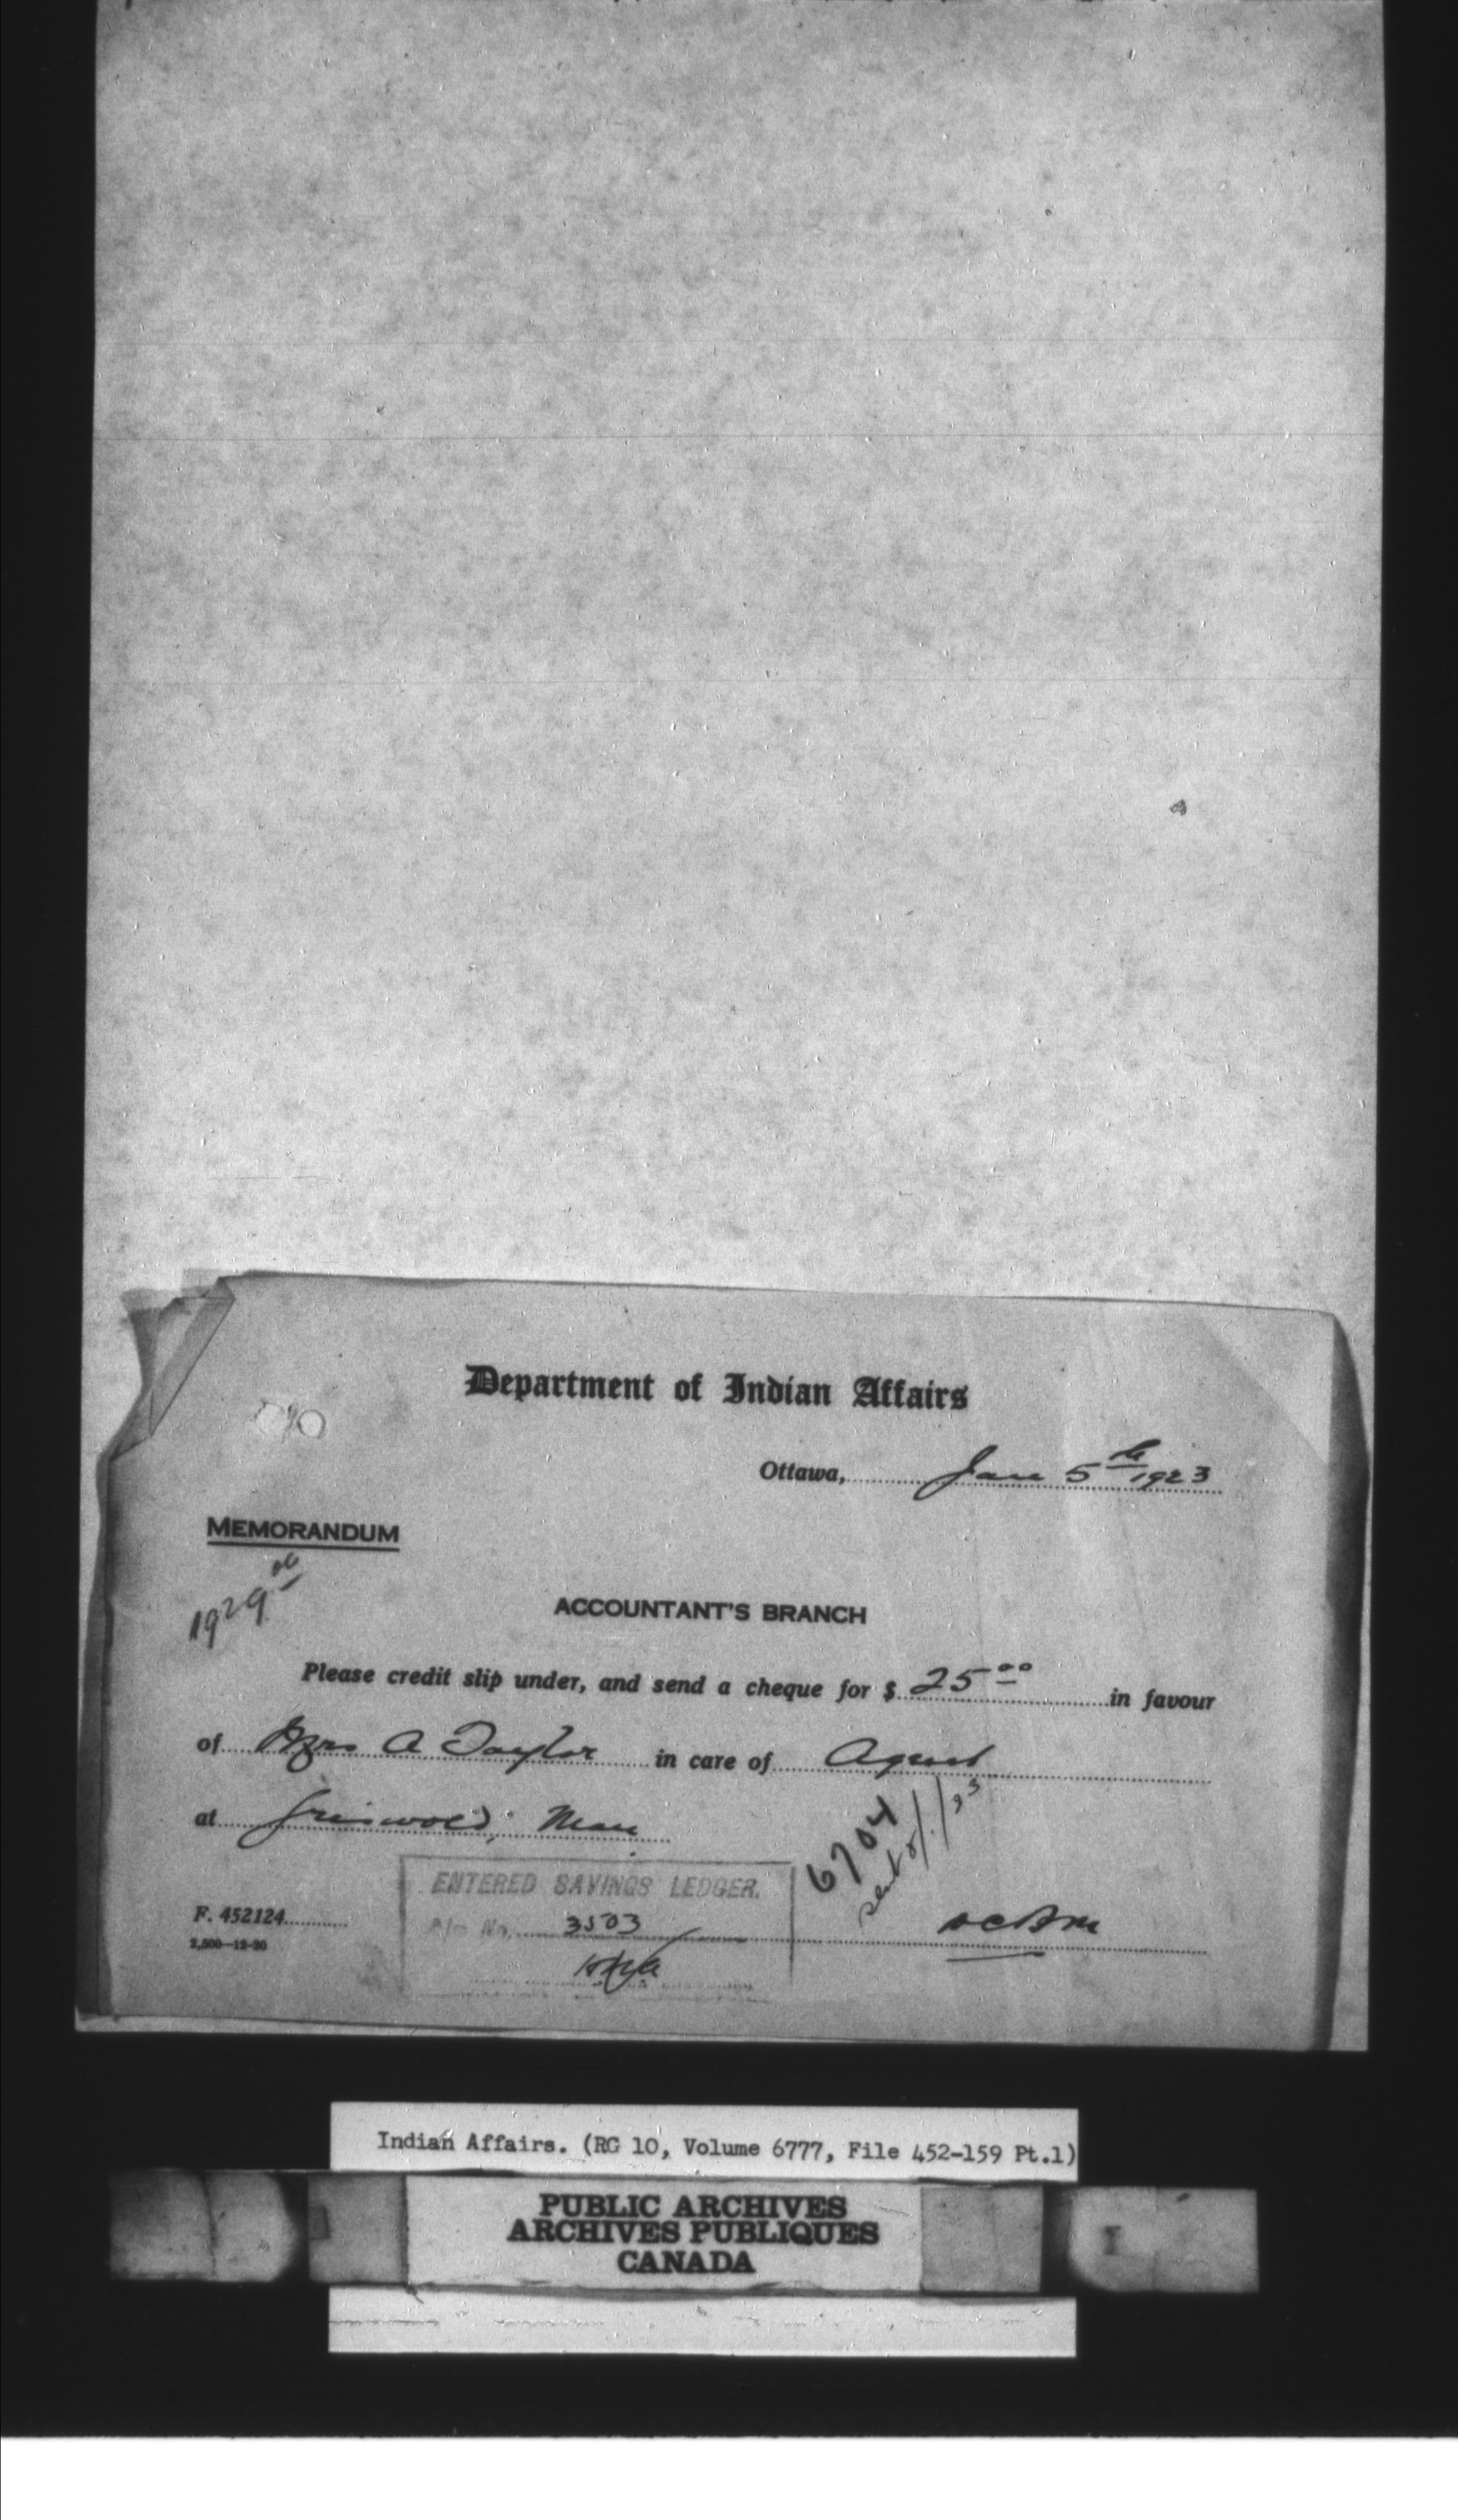 Department of Indian Affairs
Ottawa, Jan 5th 1923
MEMORANDUM
1929.00
ACCOUNTANT'S BRANCH
Please credit slip under, and send a cheque for $ 25.00 in favour
of Mrs A Taylor in care of Agent
at Griswold, Man
6704
sent 8/1/23
ENTERED SAVINGS LEDGER.
No. 3503
F. 452124
2,500—12-20
Indian Affairs. (RG 10, Volume 6777, File 452-159 Pt.1)
PUBLIC ARCHIVES
ARCHIVES PUBLIQUES
CANADA